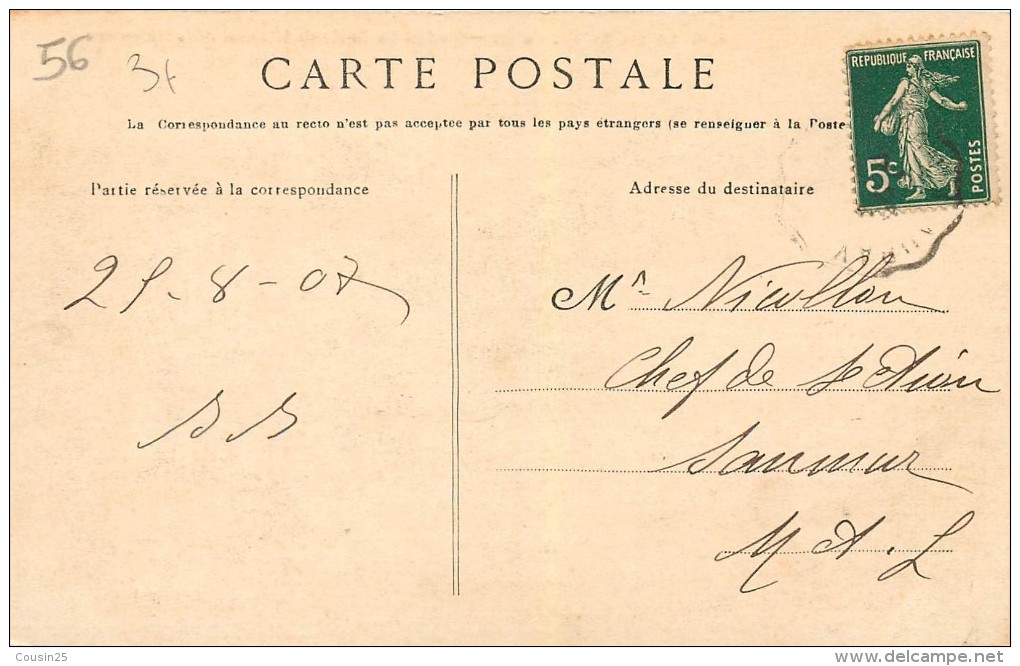 56
3f
CARTE POSTALE
REPUBLIQUE FRANÇAISE
5c
POSTES
La Correspondance au recto n'est pas acceptee par tous les pays étrangers (se renseigner à la Poste
Partie réservée à la correspondance
Adresse du destinataire
29-8-07
Mr Nicollon
Chef de Section
Saumur
M &. L
Cousin25
www.delcampe.net